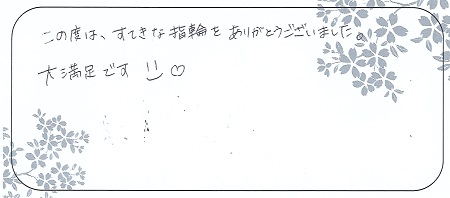 この度は、すてきな指輪をありがとうございました。
大満足です !! ♡